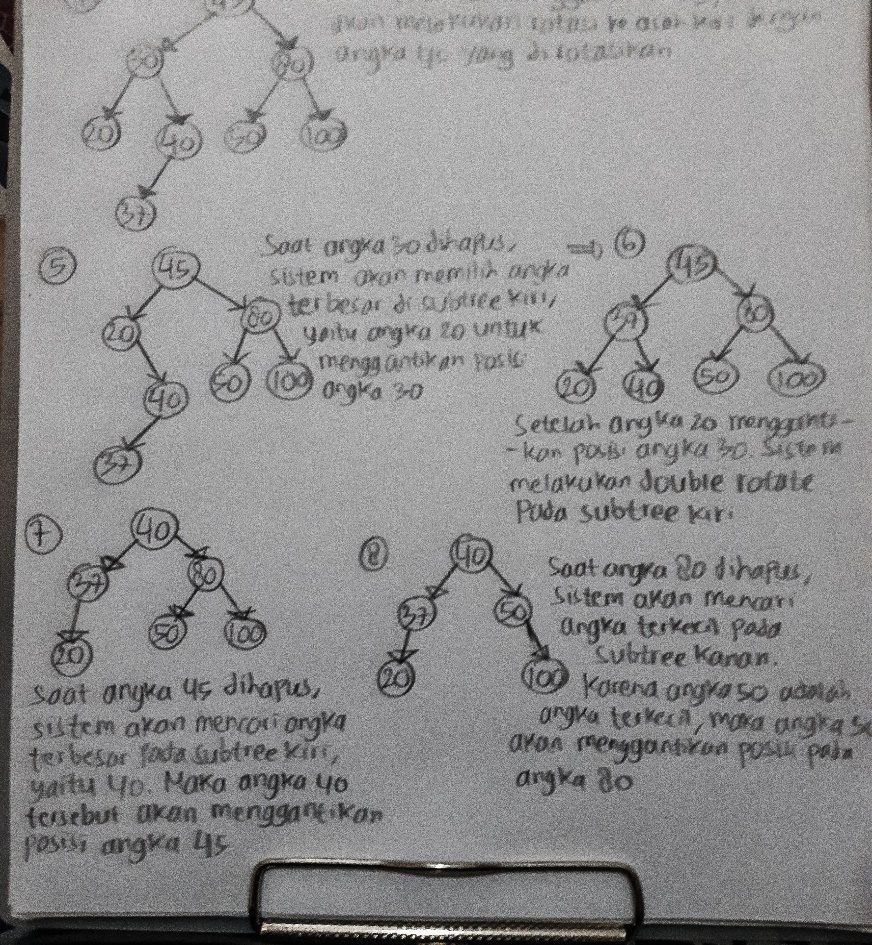 45
akan melakukan rotasi ke arah kiri dengan
angka 45 yang dirotasikan
30 80
20 40 50 100
37
5
45
20 80
40 50 100
37
Saat angka 30 dihapus,
sistem akan memilih angka
terbesar di subtree kiri,
yaitu angka 20 untuk
menggantikan posisi
angka 30
⇒ 6
45
37 80
20 40 50 100
Setelah angka 20 mengganti-
-kan posisi angka 30. Sistem
melakukan double rotate
Pada subtree kiri
7
40
37 80
20 50 100
Saat angka 45 dihapus,
sistem akan mencari angka
terbesar pada subtree kiri,
yaitu 40. Maka angka 40
tersebut akan menggantikan
posisi angka 45
8
40
37 50
20 100
Saat angka 80 dihapus,
Sistem akan mencari
angka terkecil pada
subtree kanan.
Karena angka 50 adalah
angka terkecil, maka angka 50
akan menggantikan posisi pada
angka 80